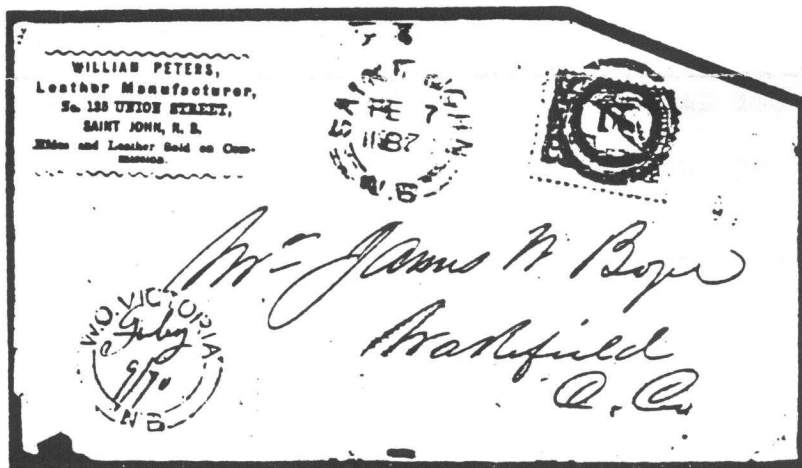 WILLIAM PETERS,
Leather Manufacturer,
No. 135 UNION STREET,
SAINT JOHN, N. B.
Hides and Leather Sold on Com-
mission.
SAINT JOHN
FE 7
87
N.B
Mr James W
Wakefield
C. Co
W.O. VICTORIA
N B